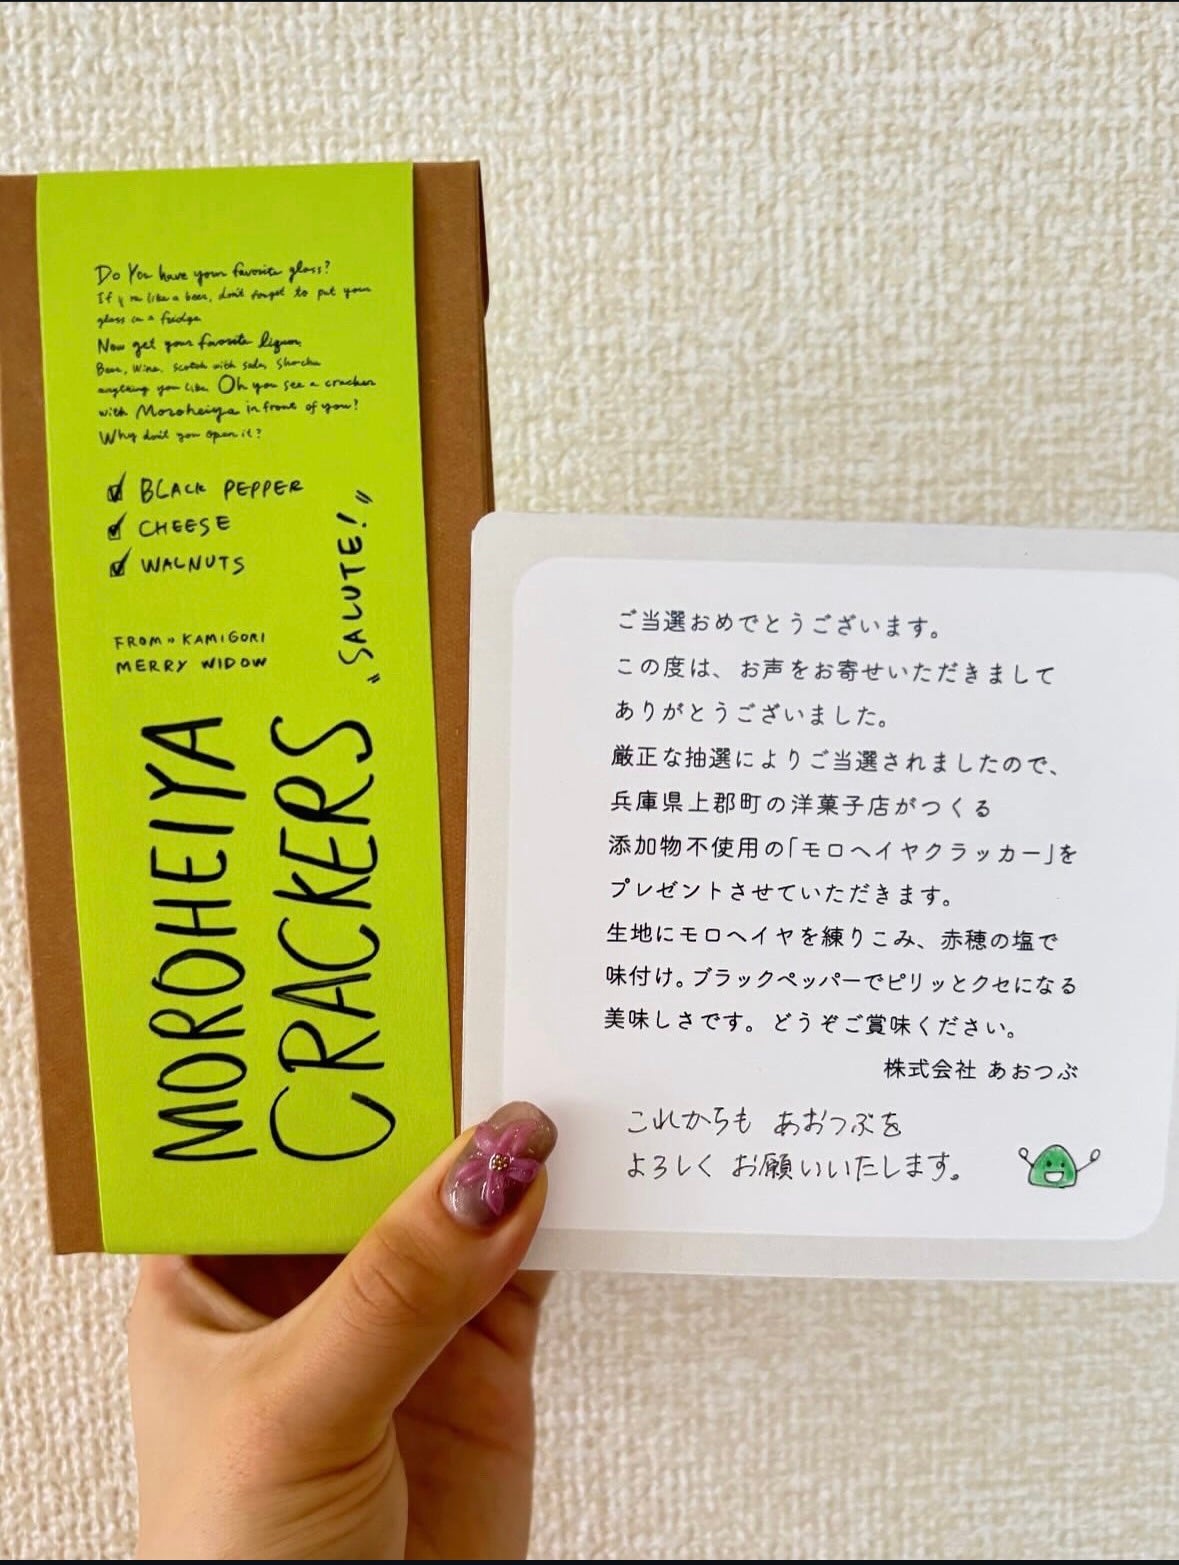 Do You have your favorite glass?
If you like a beer, don't forget to put your
glass in a fridge
Now get your favorite liquor,
Beer, Wine, Scotch with soda, Shochu
anything you like. Oh you see a cracker
with Moroheiya in front of you?
Why don't you open it?
BLACK PEPPER
CHEESE
WALNUTS
"SALUTE!"
FROM » KAMIGORI
MERRY WIDOW
MOROHEIYA
CRACKERS
ご当選おめでとうございます。
この度は、お声をお寄せいただきまして
ありがとうございました。
厳正な抽選によりご当選されましたので、
兵庫県上郡町の洋菓子店がつくる
添加物不使用の「モロヘイヤクラッカー」を
プレゼントさせていただきます。
生地にモロヘイヤを練りこみ、赤穂の塩で
味付け。ブラックペッパーでピリッとクセになる
美味しさです。どうぞご賞味ください。
株式会社 あおつぶ
これからも あおつぶを
よろしく お願いいたします。